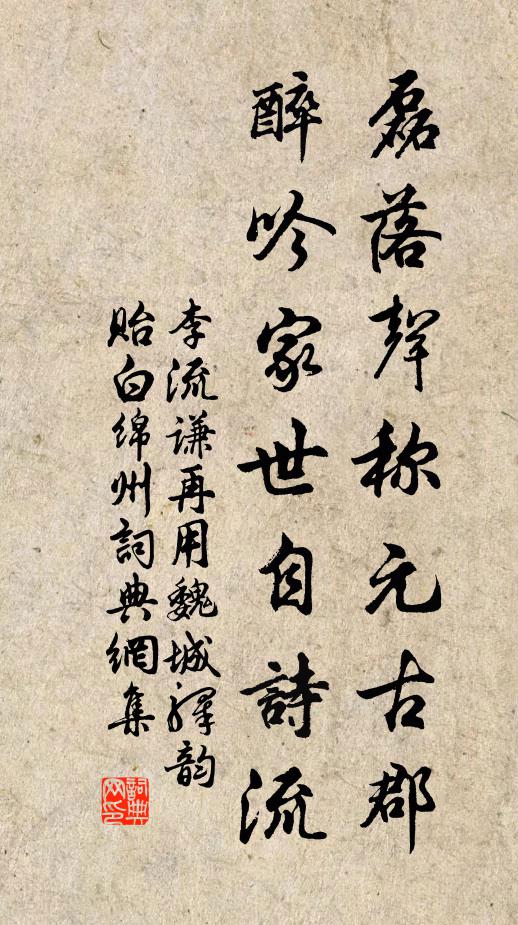 磊落聲称元古郡
醉吟家世自詩流
李流謙再用魏城驛韵
贻白绵州詞典網集
詞典网印